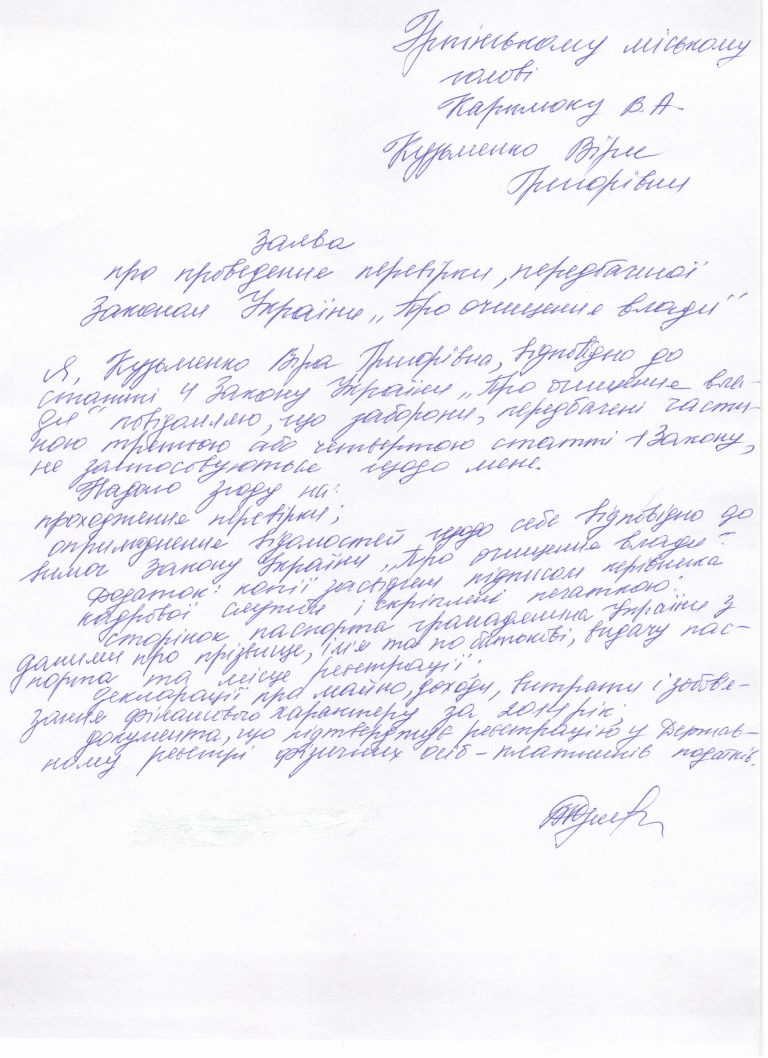 Ірпінському міському
голові
Карплюку В.А.
Кузьменко Віри
Григорівни
Заява
про проведення перевірки, передбаченої
Законом України „Про очищення влади"
Я, Кузьменко Віра Григорівна, відповідно до
статті 4 Закону України „Про очищення вла-
ди" повідомляю, що заборони, передбачені части-
ною третьою або четвертою статті 1 Закону,
не застосовуються щодо мене.
Надаю згоду на:
проходження перевірки;
оприлюднення відомостей щодо себе відповідно до
вимог Закону України „Про очищення влади"
Додаток: копії засвідчені підписом керівника
кадрової служби і скріплені печаткою:
сторінок паспорта громадянина України з
даними про прізвище, ім'я та по батькові, видачу пас-
порта та місце реєстрації:
декларації про майно, доходи, витрати і зобов'я-
зання фінансового характеру за 2014 рік;
документа, що підтверджує реєстрацію у Держав-
ному реєстрі фізичних осіб – платників податків.